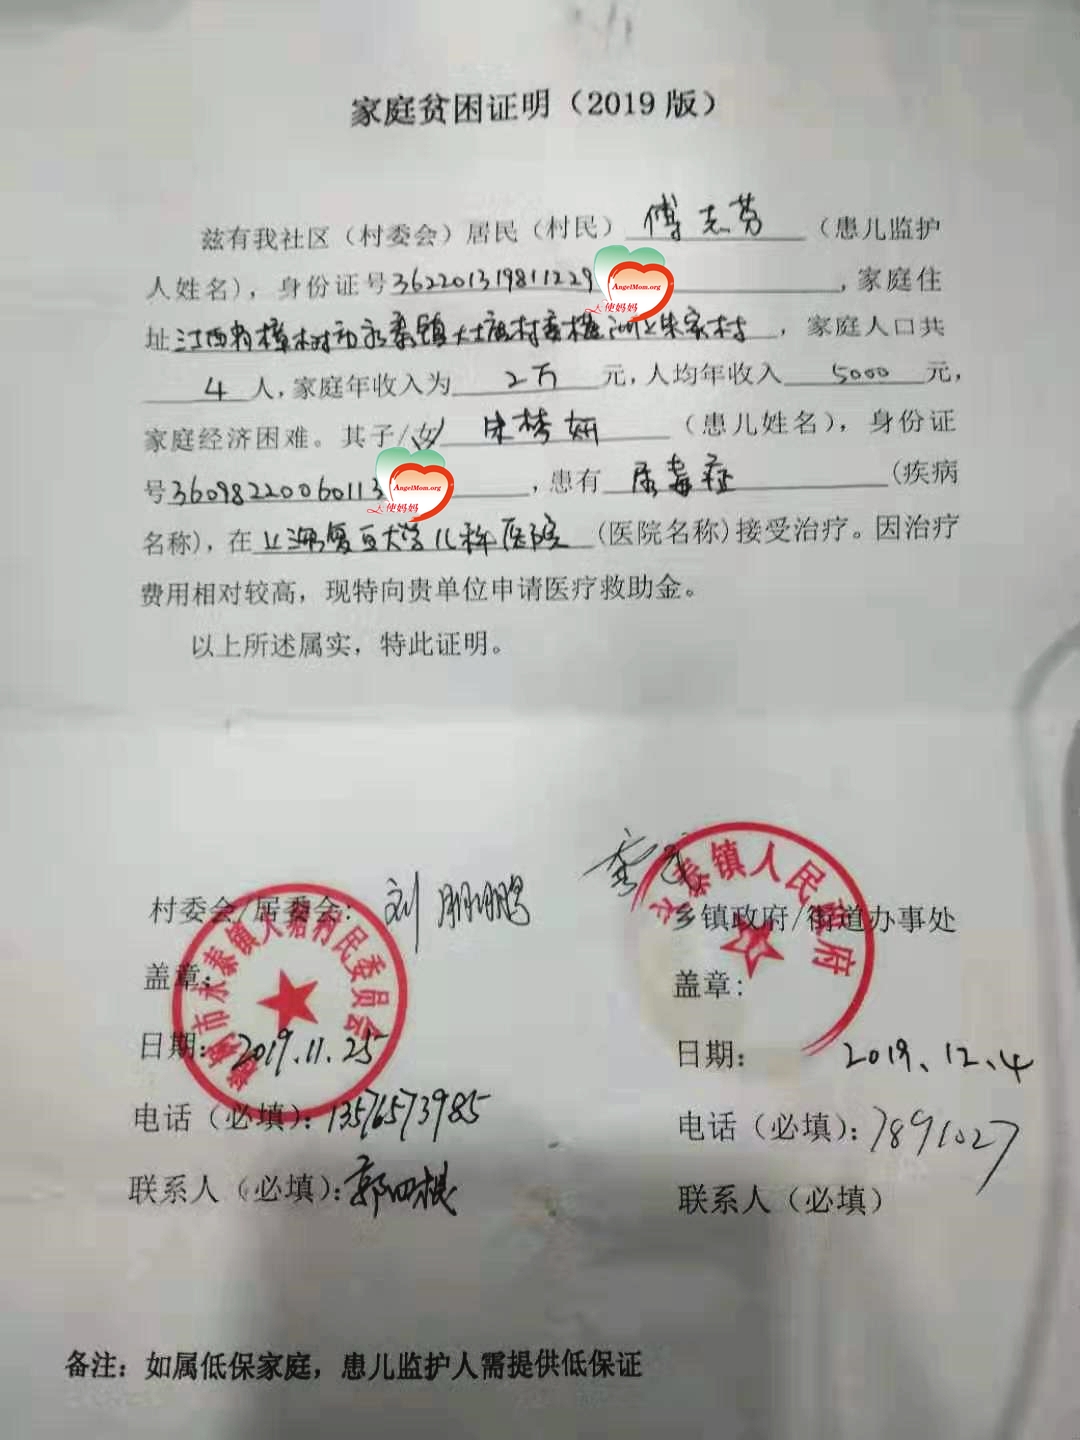 家庭贫困证明（2019版）
兹有我社区（村委会）居民（村民）傅志芳（患儿监护
人姓名），身份证号362201319811229 AngelMom.org 天使妈妈，家庭住
址江西省樟树市永泰镇大塘村委楼洲上朱家村，家庭人口共
4人，家庭年收入为2万元，人均年收入5000元，
家庭经济困难。其子/女朱梦妍（患儿姓名），身份证
号36098220060113 AngelMom.org 天使妈妈，患有尿毒症（疾病
名称），在上海复旦大学儿科医院（医院名称）接受治疗。因治疗
费用相对较高，现特向贵单位申请医疗救助金。
以上所述属实，特此证明。
村委会/居委会：刘鹏
盖章：
樟树市永泰镇大塘村民委员会
日期：2019.11.25
电话（必填）：13576573985
联系人（必填）：郭四根
永泰镇人民政府
乡镇政府/街道办事处
盖章：
日期：2019.12.4
电话（必填）：7891027
联系人（必填）
备注：如属低保家庭，患儿监护人需提供低保证